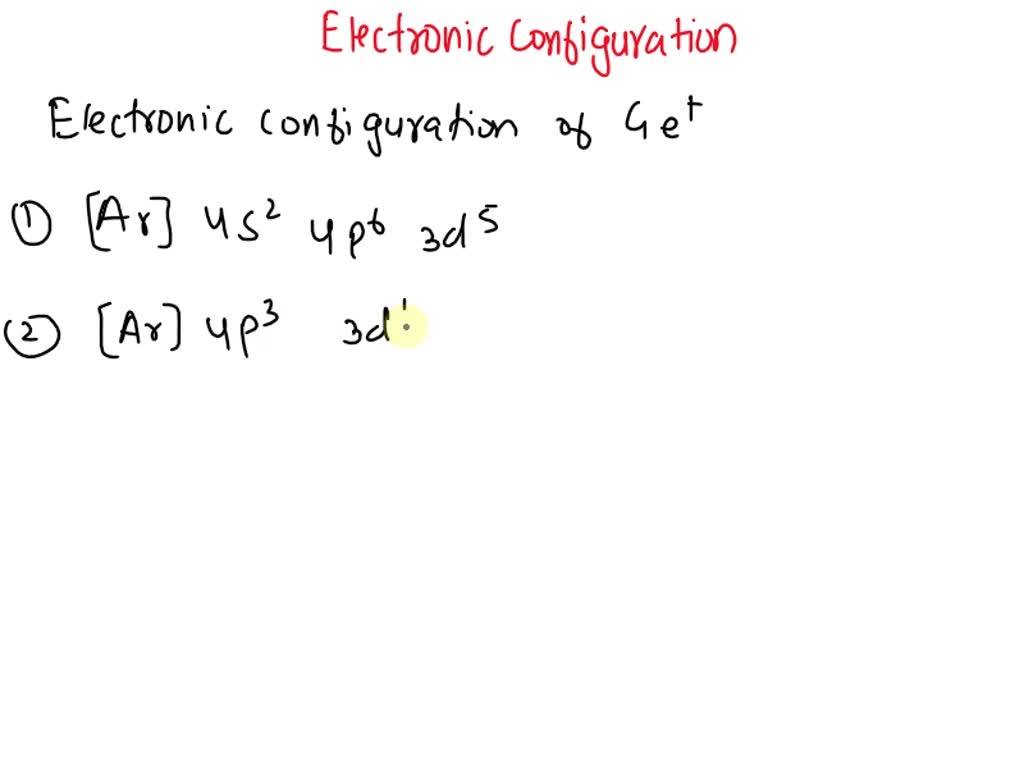 Electronic Configuration
Electronic configuration of Ge⁺
① [Ar] 4s² 4p⁶ 3d⁵
② [Ar] 4p³ 3d¹